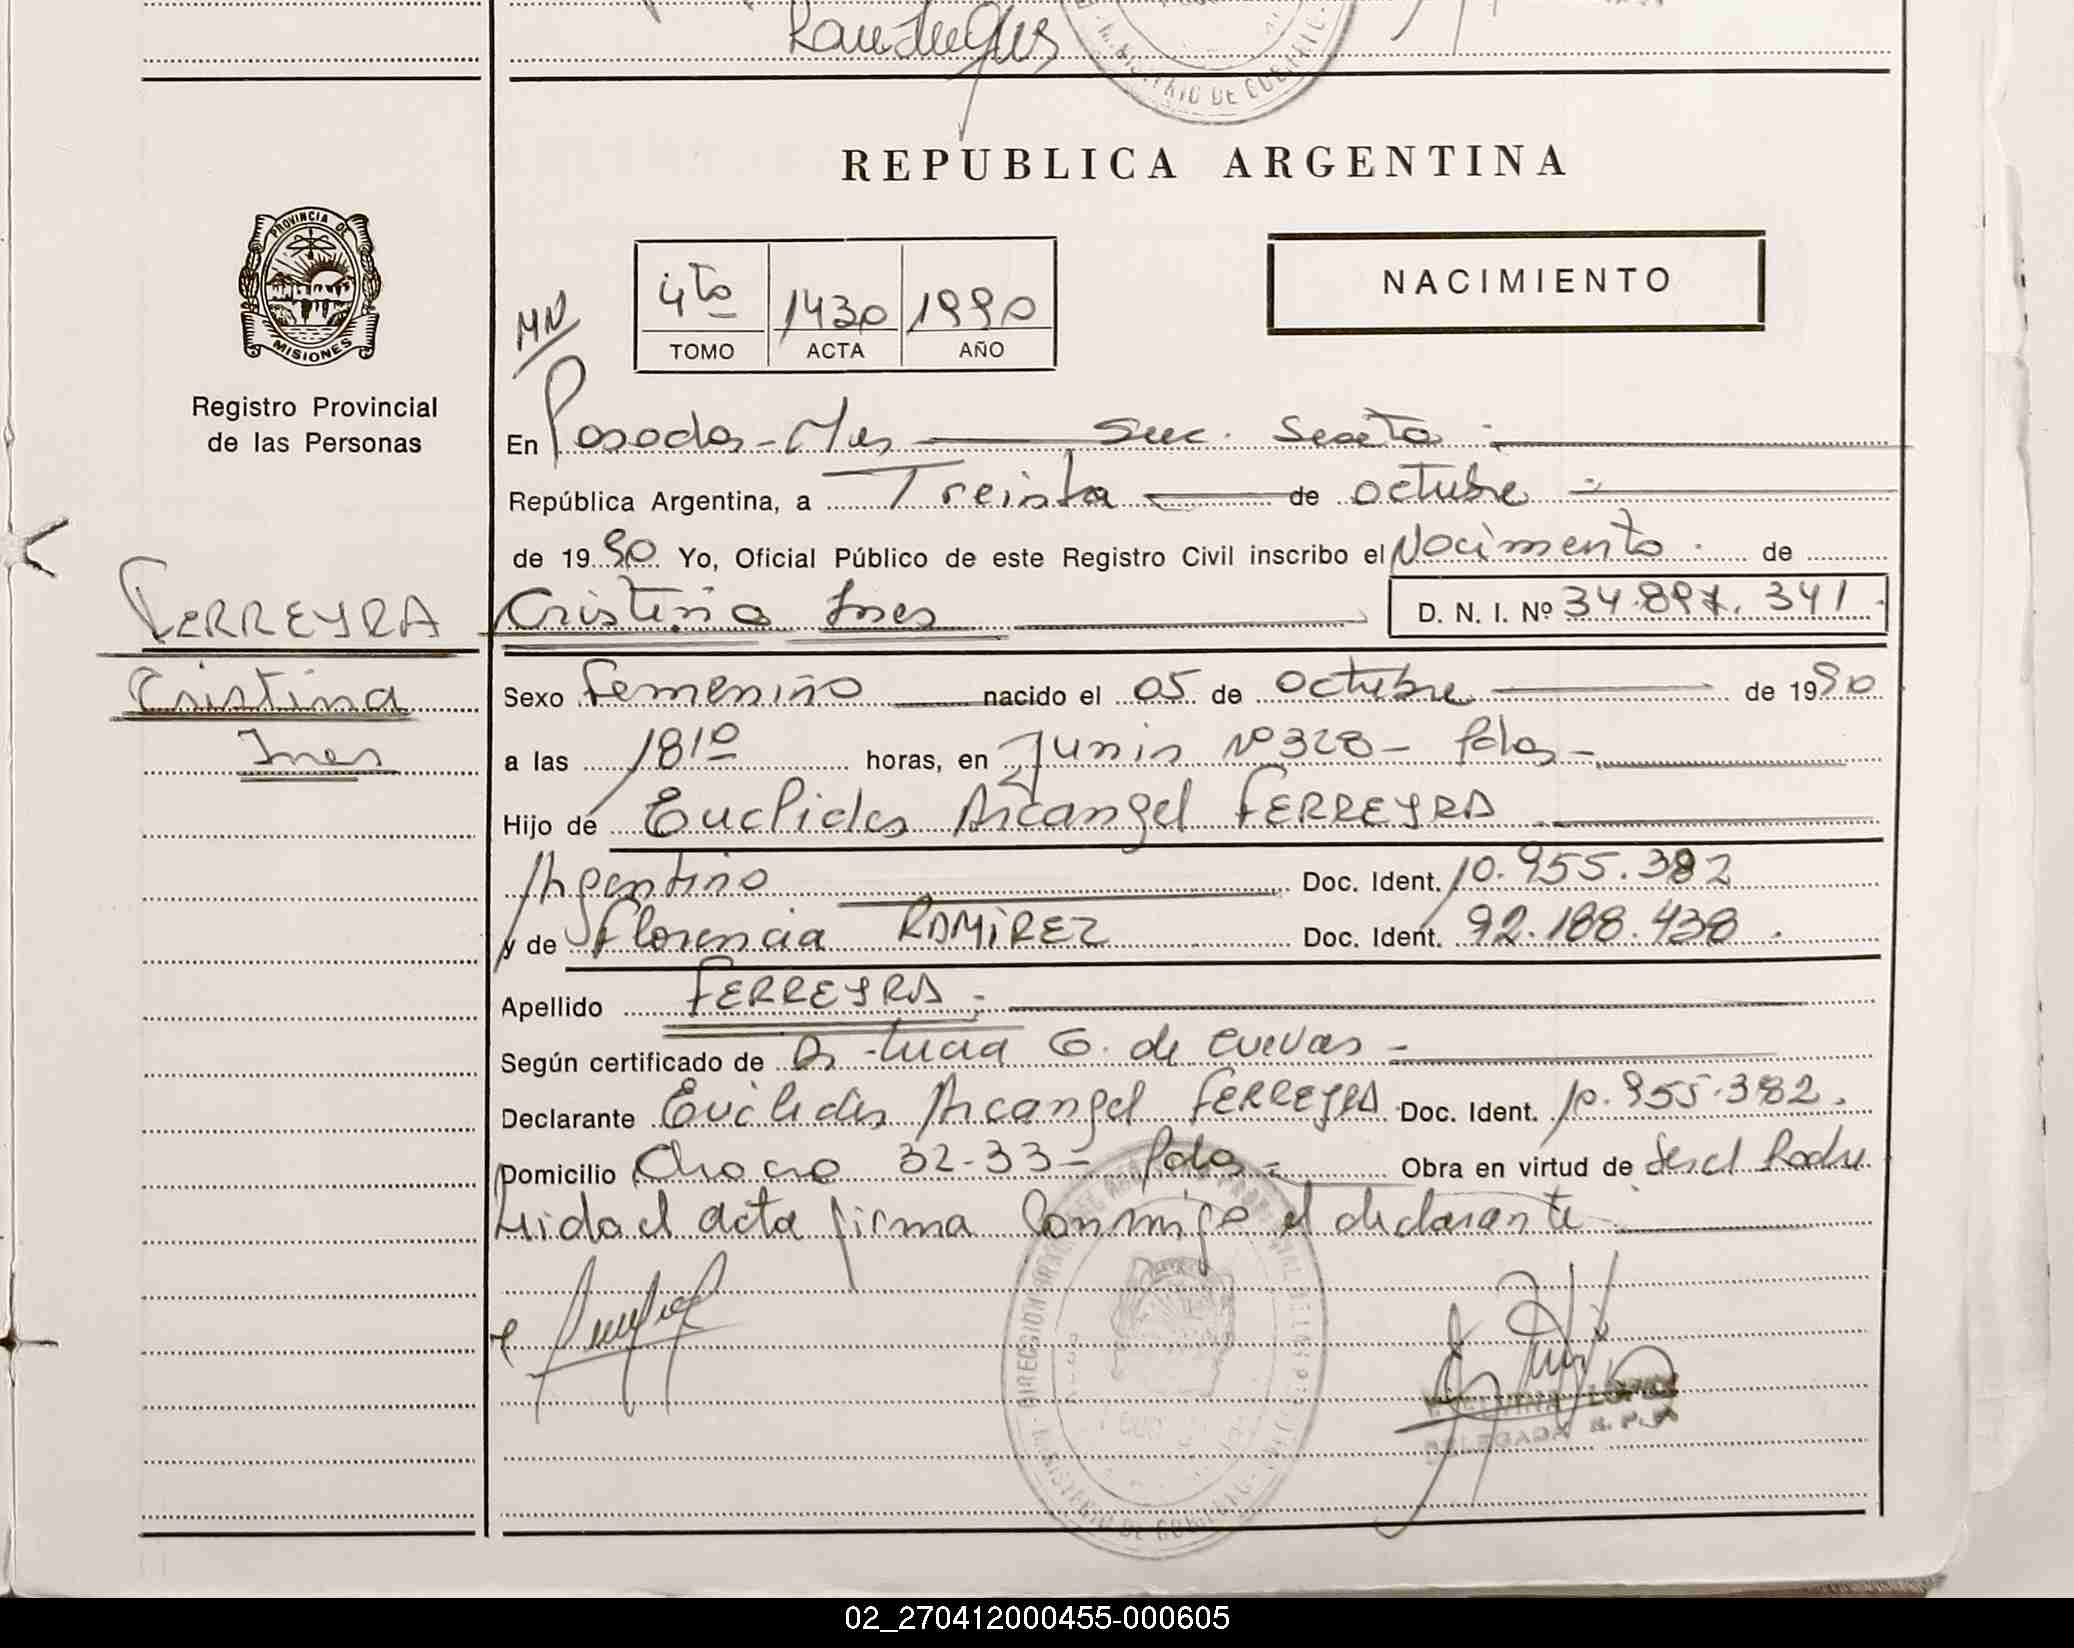 REPUBLICA ARGENTINA
PROVINCIA DE
MISIONES
Registro Provincial
de las Personas
NACIMIENTO
4to 1430 1990
TOMO ACTA AÑO
En Posadas - Mnes Secc. Sexta
República Argentina, a Treinta de octubre
de 1990 Yo, Oficial Público de este Registro Civil inscribo el Nacimiento de
FERREYRA Cristina Ines D. N. I. Nº 34.897.341
Cristina
Ines
Sexo Femenino nacido el 05 de Octubre de 1990
a las 18 10 horas, en Junin Nº 328 - Pdas -
Hijo de Euclides Arcangel FERREYRA
Argentino Doc. Ident. 10.955.382
y de Florencia RAMIREZ Doc. Ident. 92.188.438
Apellido FERREYRA
Según certificado de Lucia G. de Cuevas -
Declarante Euclides Arcangel FERREYRA Doc. Ident. 10.955.382
Domicilio Chacra 32-33 - Pdas - Obra en virtud de
Leida el acta firma conmigo el declarante
LOPEZ
DELEGADA R.P.P.
02_270412000455-000605